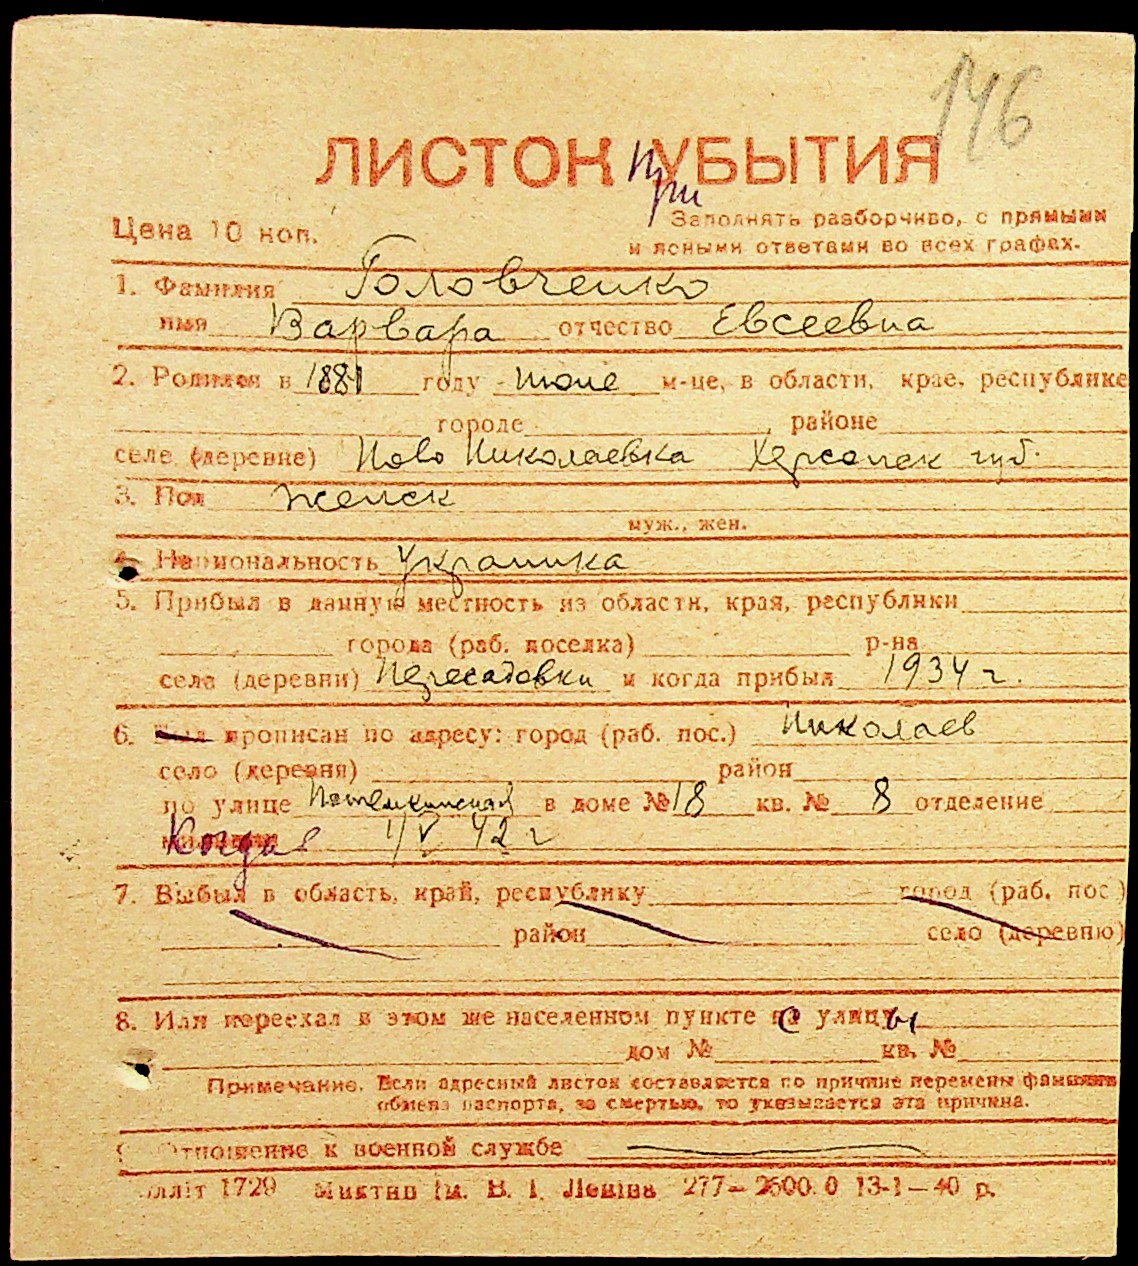 146
ЛИСТОК При УБЫТИЯ
Цена 10 коп.
Заполнять разборчиво, с прямыми
и ясными ответами во всех графах.
1. Фамилия Головченко
имя Варвара отчество Евсеевна
2. Родился в 1881 году июне м-це, в области, крае, республике
городе районе
селе (деревне) Ново Николаевка Херсонск губ.
3. Пол женск
муж., жен.
4. Национальность Украинка
5. Прибыл в данную местность из области, края, республики
города (раб. поселка) р-на
села (деревни) Пересадовки и когда прибыл 1934 г.
6. Был прописан по адресу: город (раб. пос.) Николаев
село (деревня) район
по улице Потемкинская в доме № 18 кв. № 8 отделение
милиции Когда 1/V 42 г
7. Выбыл в область, край, республику город (раб. пос.)
район село (деревню)
8. Или переехал в этом же населенном пункте с улицы
дом № кв. №
Примечание. Если адресный листок составляется по причине перемены фамилии
обмена паспорта, за смертью, то указывается эта причина.
9. Отношение к военной службе
лліт 1729 Миктип ім. В. І. Леніна 277—2600.0 13-1—40 р.